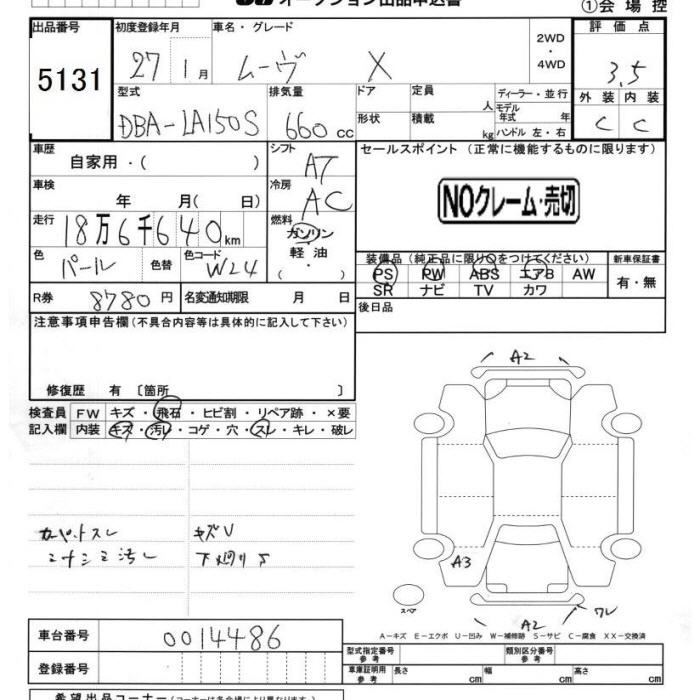 オークション出品申込書
①会場控
出品番号 初度登録年月 車名・グレード 評価点
5131 27 1月 ムーヴ X 2WD・4WD 3.5
型式 排気量 ドア 定員 人 ディーラー・並行 外装 内装
DBA-LA150S 660cc 形状 積載 kg モデル年式 年 ハンドル 左・右 C C
車歴 自家用・( ) シフト AT セールスポイント (正常に機能するものに限ります)
車検 年 月( 日) 冷房 AC NOクレーム・売切
走行 18万6千640km 燃料 ガソリン 軽油 ・
色 パール 色替 色コード W24 装備品(純正品に限り○をつけてください) 新車保証書
PS PW ABS エアB AW 有・無
SR ナビ TV カワ
R券 8780円 名変通知期限 月 日 後日品
注意事項申告欄(不具合内容等は具体的に記入して下さい)
修復歴 有 〔箇所 〕
検査員 FW キズ・飛石・ヒビ割・リペア跡・×要
記入欄 内装 キズ・汚レ・コゲ・穴・スレ・キレ・破レ
A2
カーペットスレ キズV
汚レ 下廻りS
A3
スペア
A2 ワレ
A-キズ E-エクボ U-凹み W-補修跡 S-サビ C-腐食 XX-交換済
車台番号 0014486
型式指定番号 参考 類別区分番号 参考
登録番号
車庫証明用 参考 長さ cm 幅 cm 高さ cm
希望出品コーナー(コーナーは各会場により異なります)